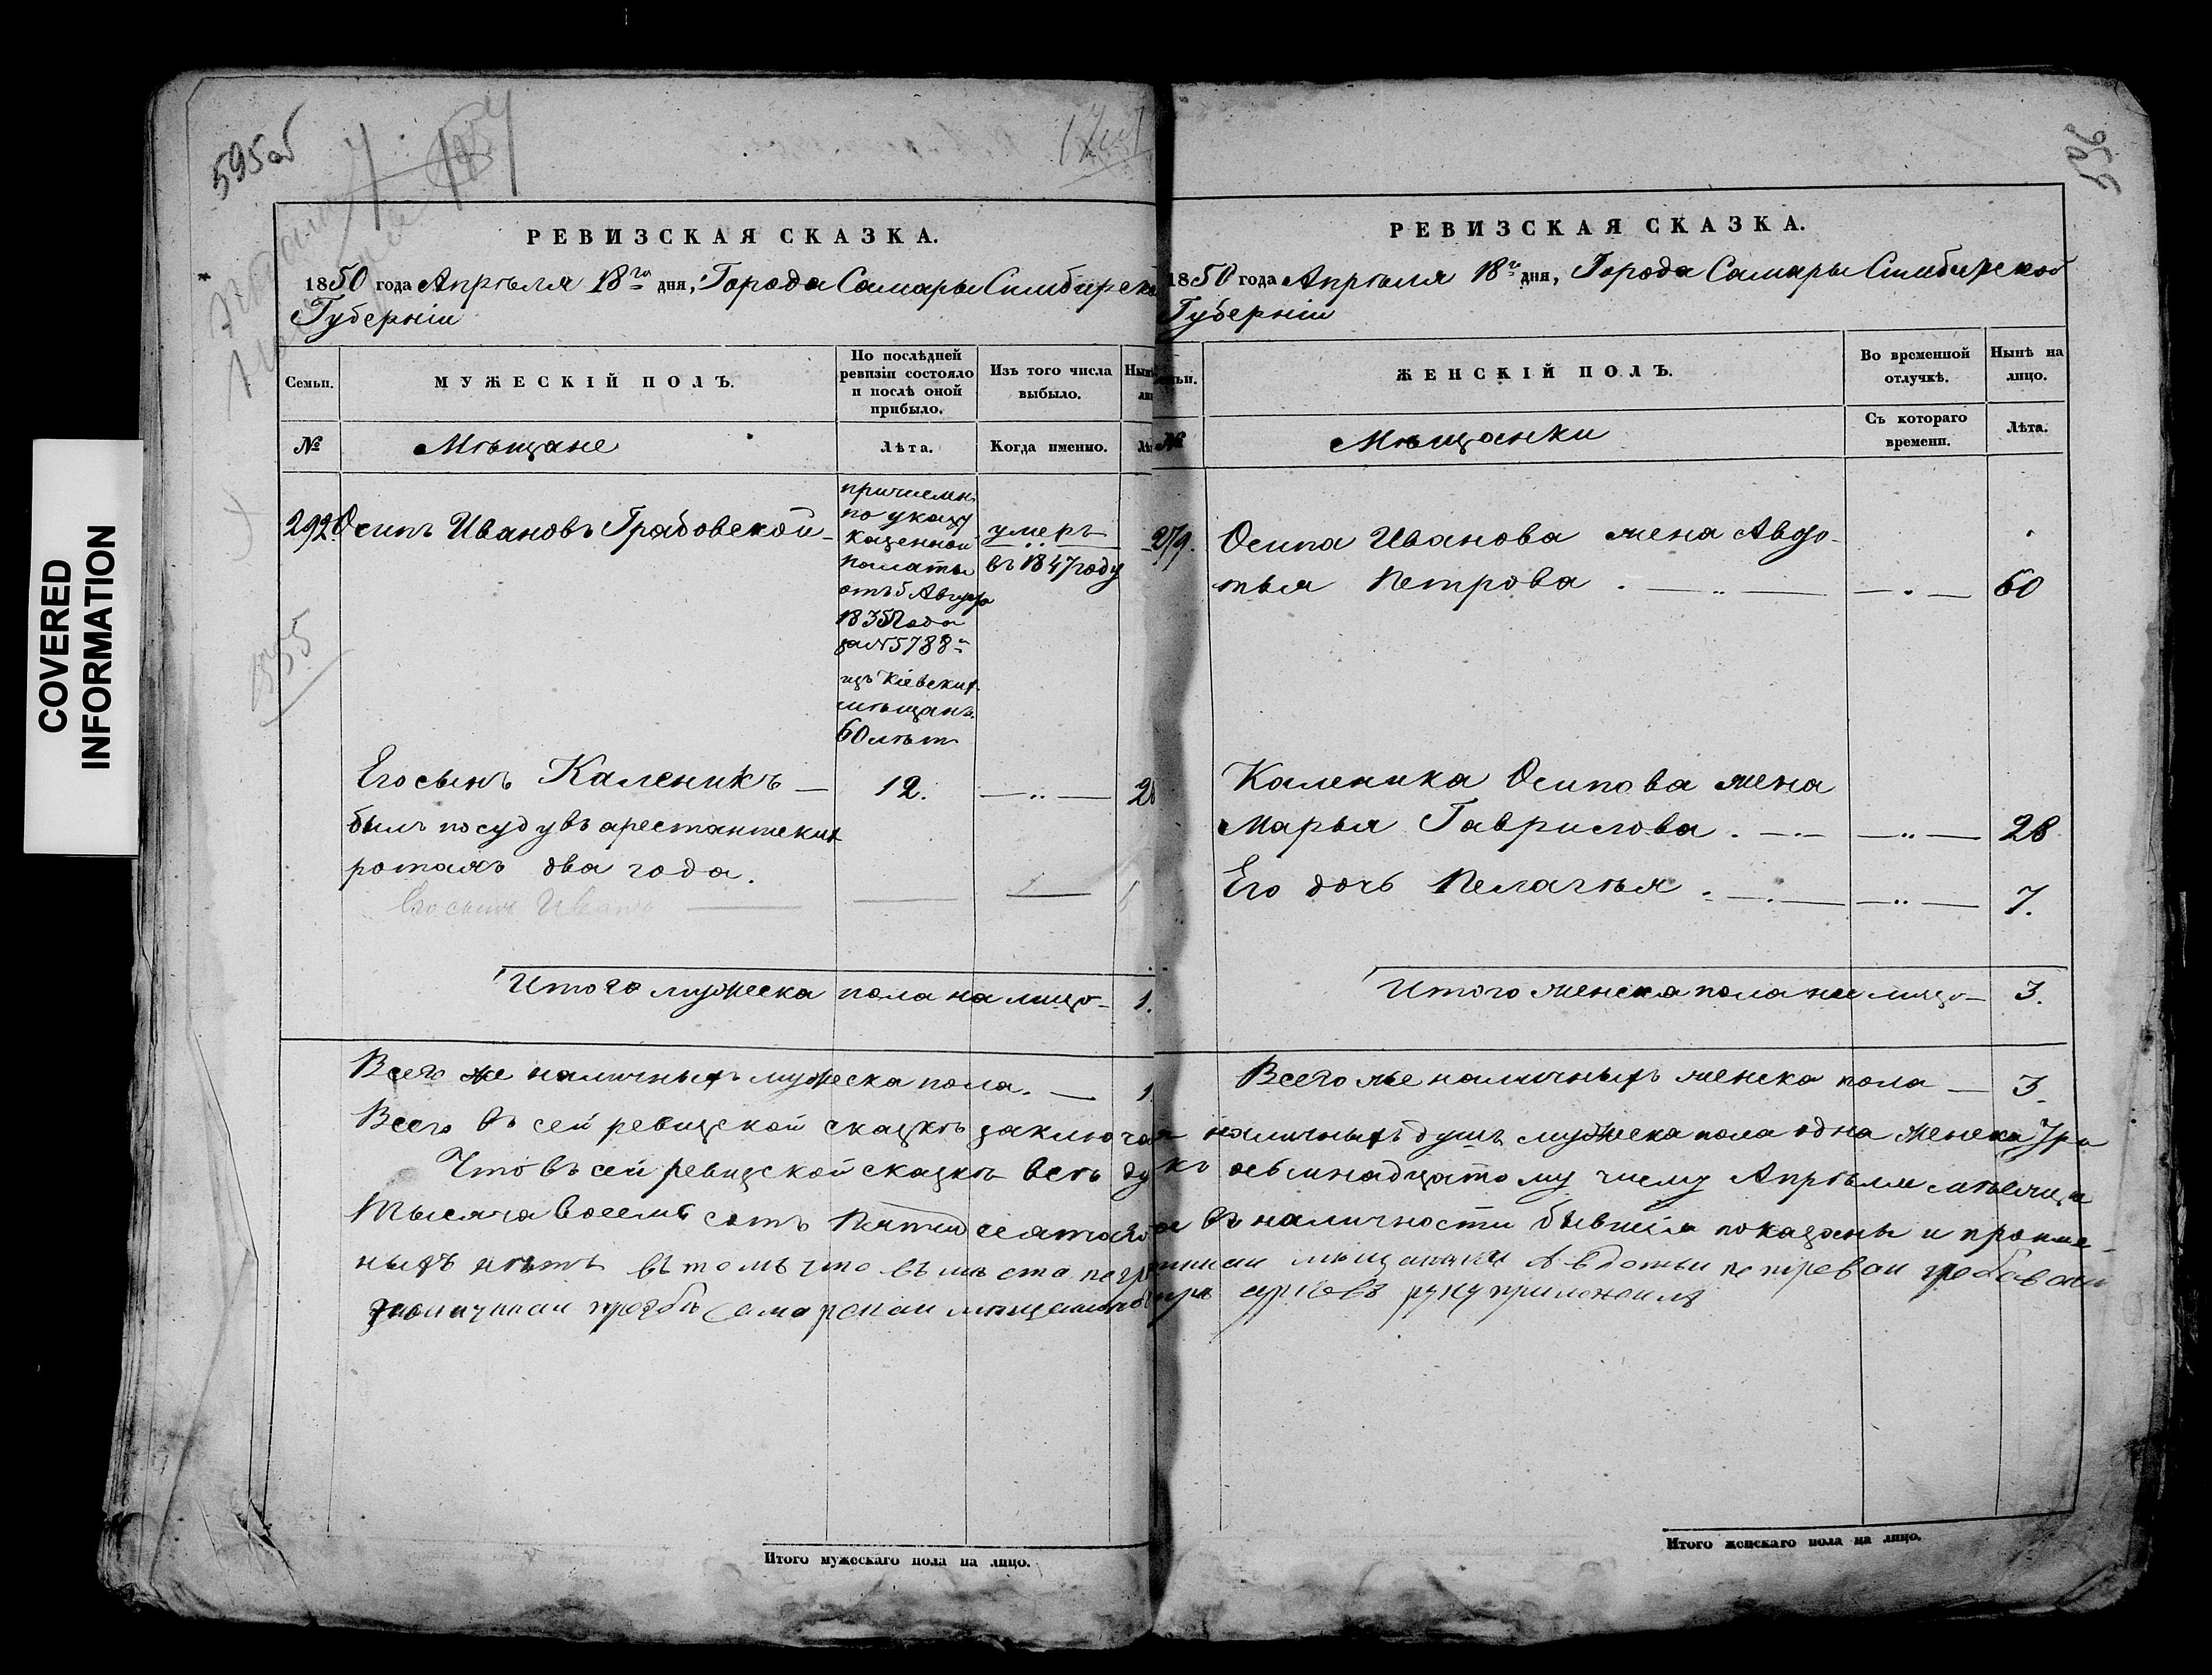 595об
РЕВИЗСКАЯ СКАЗКА.
1850 года Апрѣля 18го дня, Города Самары Симбирско
Губерніи
Семьи.
МУЖЕСКІЙ ПОЛЪ.
По послѣдней
ревизіи состояло
и послѣ оной
прибыло.
Изъ того числа
выбыло.
№
Мѣщане
Лѣта.
Когда именно.
292. Осипъ Ивановъ Грабовской
причислен
по указу
казенной
палаты
отъ 5 Августа
1835 года
за №5788м
изъ Кіевских
мѣщанъ.
60 лѣт
умеръ
въ 1847 году
Его сынъ Каленикъ — 12. — „ —
былъ по суду въ арестантских
ротахъ два года.
Его сынъ Иванъ
Итого мужеска пола на лицо — 1.
Всего же наличныхъ мужеска пола. — 1
Всего въ сей ревизской сказкѣ заключа
Что въ сей ревизской сказкѣ всѣ ду
Тысяча восемь сотъ пятидесятаго
ныхъ нѣтъ въ томъ что въмѣсто негра
самарскай мещанинъ
595
РЕВИЗСКАЯ СКАЗКА.
1850 года Апрѣля 18го дня, Города Самары Симбирской
Губерніи
ЖЕНСКІЙ ПОЛЪ.
Во временной
отлучкѣ.
Нынѣ на
лицо.
№
Мѣщанки
Съ котораго
времени.
Лѣта.
279. Осипа Иванова жена Авдо-
тья Петрова . — „ — — „ — 60
Каленика Осипова жена
Марья Гаврилова . — „ — — „ — 28
Его дочь Пелагѣя . — „ — — „ — 7.
Итого женска пола на лицо — 3.
Всего же наличныхъ женска пола — 3.
наличныхъ душъ мужеска пола одна женска три
къ осьмнадцатому числу Апрѣля мѣсяца
въ наличности бывшія показаны и пропис-
мещанки Авдотьи петровай
руку приложилъ
Итого мужескаго пола на лицо.
Итого женскаго пола на лицо.
COVERED
INFORMATION